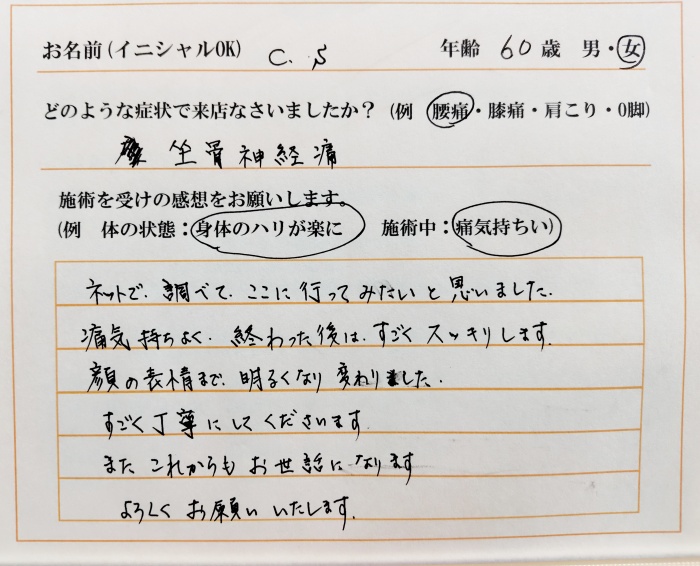 お名前(イニシャルOK) C. S 年齢 60歳 男・女
どのような症状で来店なさいましたか？(例 腰痛・膝痛・肩こり・O脚)
坐骨神経痛
施術を受けの感想をお願いします。
(例 体の状態：身体のハリが楽に 施術中：痛気持ちい)
ネットで、調べて、ここに行ってみたいと思いました。
痛気持ちよく、終わった後は、すごくスッキリします。
顔の表情まで、明るくなり変わりました。
すごく丁寧にしてくださいます。
また これからも お世話になります
よろしく お願い いたします。